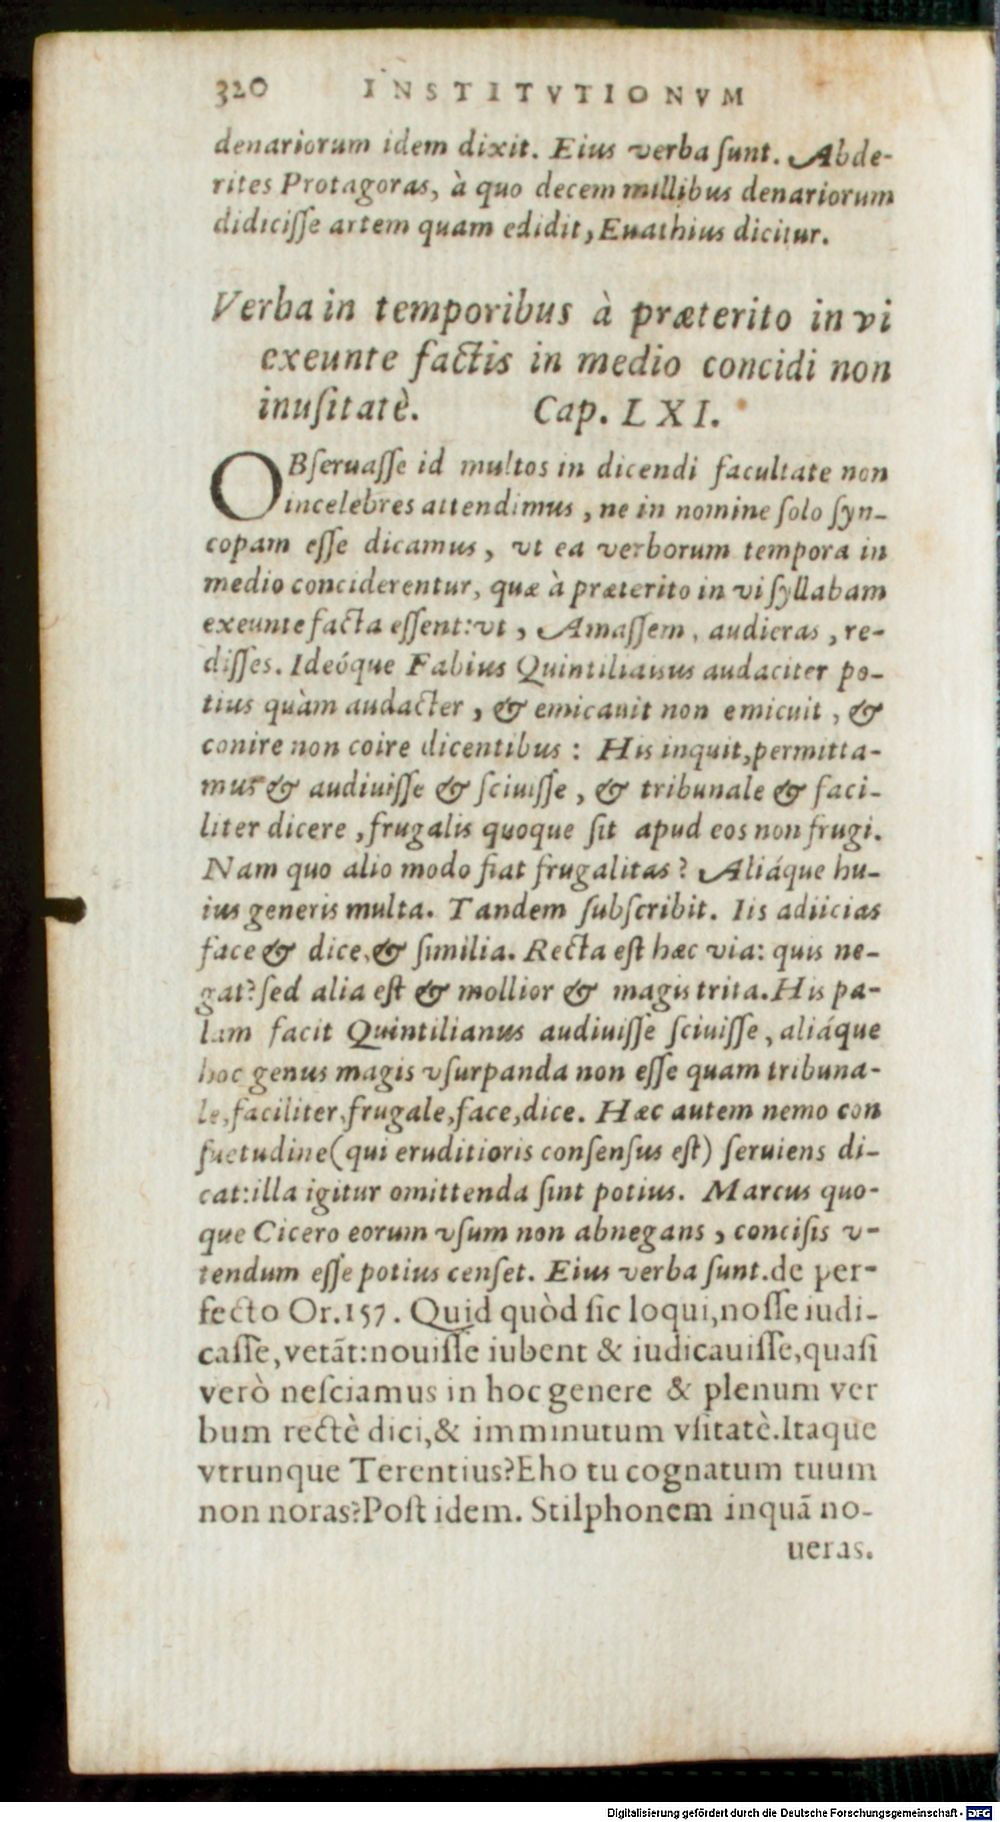 320 INSTITVTIONVM
denariorum idem dixit. Eius verba ſunt. Abde-
rites Protagoras, à quo decem millibus denariorum
didiciſſe artem quam edidit, Euathius dicitur.
Verba in temporibus à præterito in vi
exeunte factis in medio concidi non
inuſitatè. Cap. LXI.
OBſeruaſſe id multos in dicendi facultate non
incelebres attendimus, ne in nomine ſolo ſyn-
copam eſſe dicamus, vt ea verborum tempora in
medio conciderentur, quæ à præterito in vi ſyllabam
exeunte facta eſſent: vt, Amaſſem, audieras, re-
diſſes. Ideóque Fabius Quintilianus audaciter po-
tius quàm audacter, & emicauit non emicuit, &
conire non coire dicentibus: His inquit, permitta-
mus & audiuiſſe & ſciuiſſe, & tribunale & faci-
liter dicere, frugalis quoque ſit apud eos non frugi.
Nam quo alio modo fiat frugalitas? Aliáque hu-
ius generis multa. Tandem ſubſcribit. Iis adiicias
face & dice, & ſimilia. Recta eſt hæc via: quis ne-
gat? ſed alia eſt & mollior & magis trita. His pa-
lam facit Quintilianus audiuiſſe ſciuiſſe, aliáque
hoc genus magis vſurpanda non eſſe quam tribuna-
le, faciliter, frugale, face, dice. Hæc autem nemo con
ſuetudine (qui eruditioris conſenſus eſt) ſeruiens di-
cat: illa igitur omittenda ſint potius. Marcus quo-
que Cicero eorum vſum non abnegans, conciſis v-
tendum eſſe potius cenſet. Eius verba ſunt. de per-
fecto Or. 157. Quid quòd ſic loqui, noſſe iudi-
caſſe, vetãt: nouiſſe iubent & iudicauiſſe, quaſi
verò neſciamus in hoc genere & plenum ver
bum rectè dici, & imminutum vſitatè. Itaque
vtrunque Terentius? Eho tu cognatum tuum
non noras? Poſt idem. Stilphonem inquã no-
ueras.
Digitalisierung gefördert durch die Deutsche Forschungsgemeinschaft - DFG